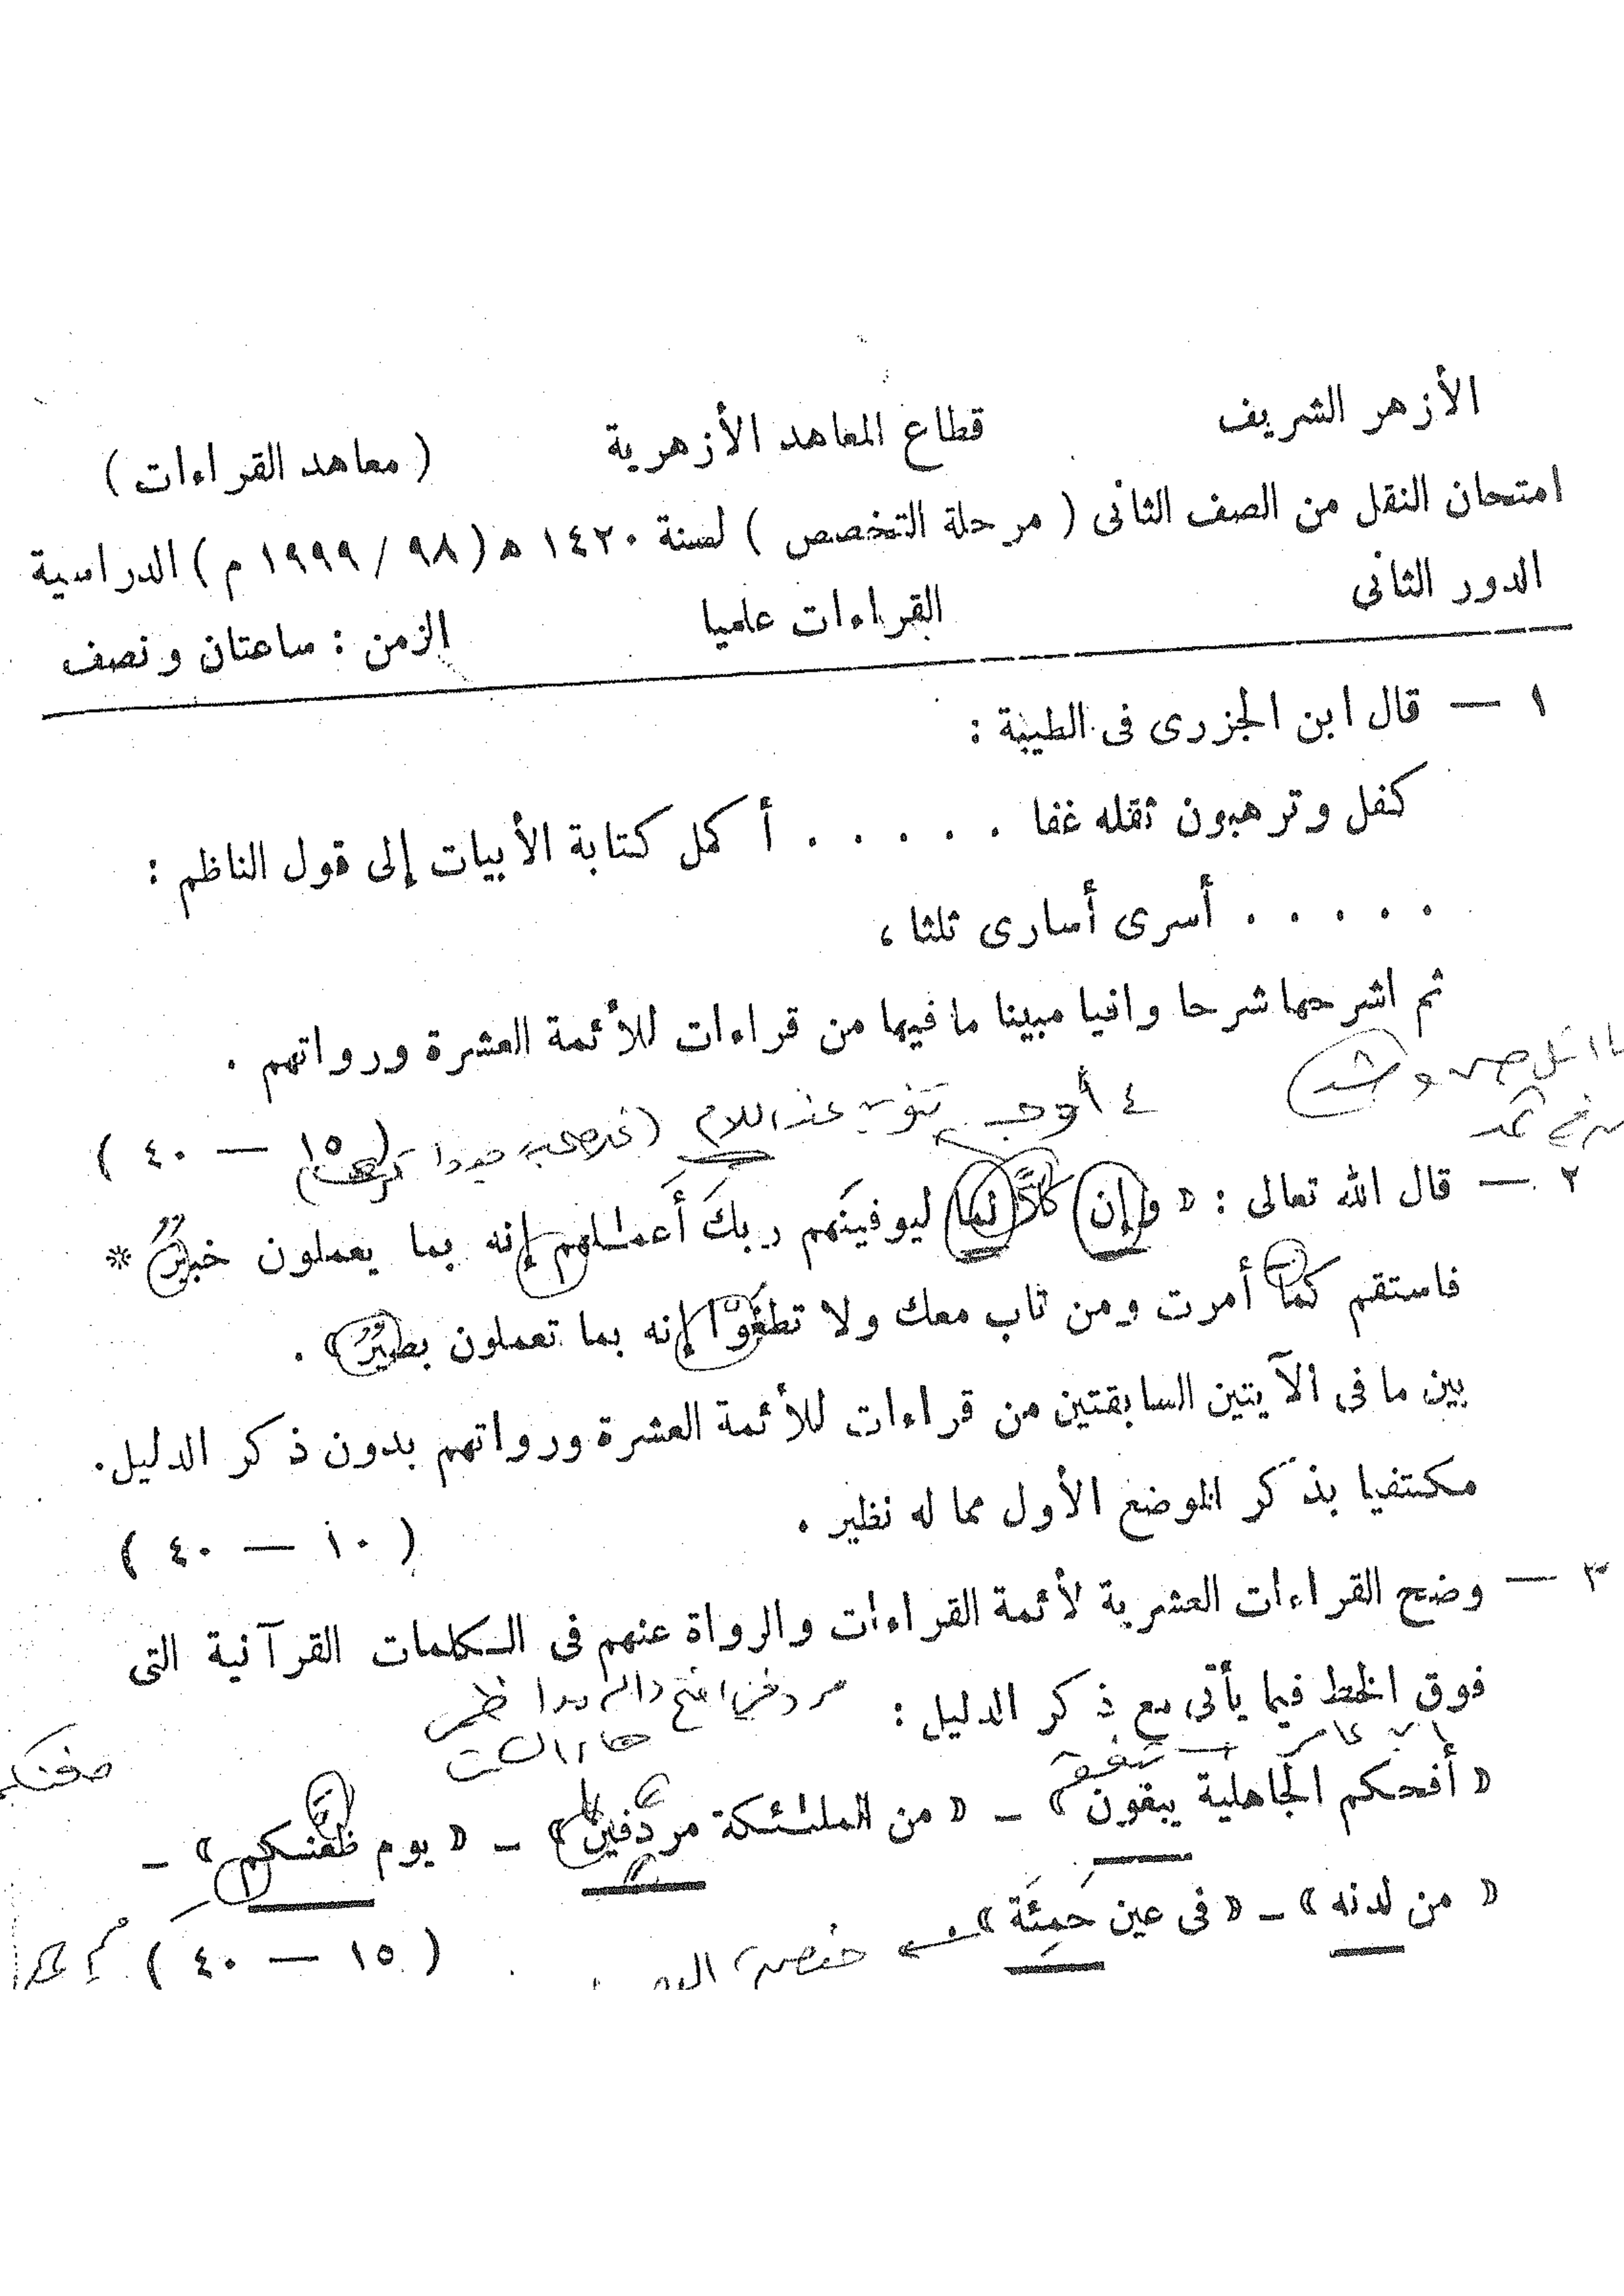 الأزهر الشريف قطاع المعاهد الأزهرية ( معاهد القراءات )
امتحان النقل من الصف الثانى ( مرحلة التخصص ) لسنة ١٤٢٠ ه ( ٩٨ / ١٩٩٩ م ) الدراسية
الدور الثانى القراءات علميا الزمن : ساعتان ونصف
١ — قال ابن الجزرى فى الطيبة :
كفل وترهبون ثقله غفا . . . . . أكمل كتابة الأبيات إلى قول الناظم :
. . . . . أسرى أسارى ثلثا ،
ثم اشرحها شرحا وافيا مبينا ما فيها من قراءات للأئمة العشرة ورواتهم .
٤ أوجه عند اللام
( ١٥ — ٤٠ )
٢ — قال الله تعالى : « وإن كلاًّ لما ليوفينَهم ربكَ أَعمالهم إنه بما يعملون خبيرٌ *
فاستقم كما أمرت ومن تاب معك ولا تطغَوْا إنه بما تعملون بصيرٌ » .
بين ما فى الآيتين السابقتين من قراءات للأئمة العشرة ورواتهم بدون ذكر الدليل .
مكتفيا بذكر الموضع الأول مما له نظير .
( ١٠ — ٤٠ )
٣ — وضح القراءات العشرية لأئمة القراءات والرواة عنهم فى الكلمات القرآنية التى
فوق الخط فيما يأتى مع ذكر الدليل :
مردفى افتح داله مدا ظمى
هاء السكت
« أفحكم الجاهلية يبغون » — « من الملائكة مردفين » — « يوم ظعنكم » —
« من لدنه » — « فى عين حَمِئَة » .
( ١٥ — ٤٠ )